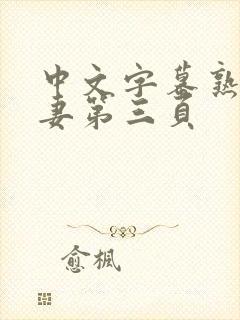 中文字幕熟
妻第三頁
愈楓